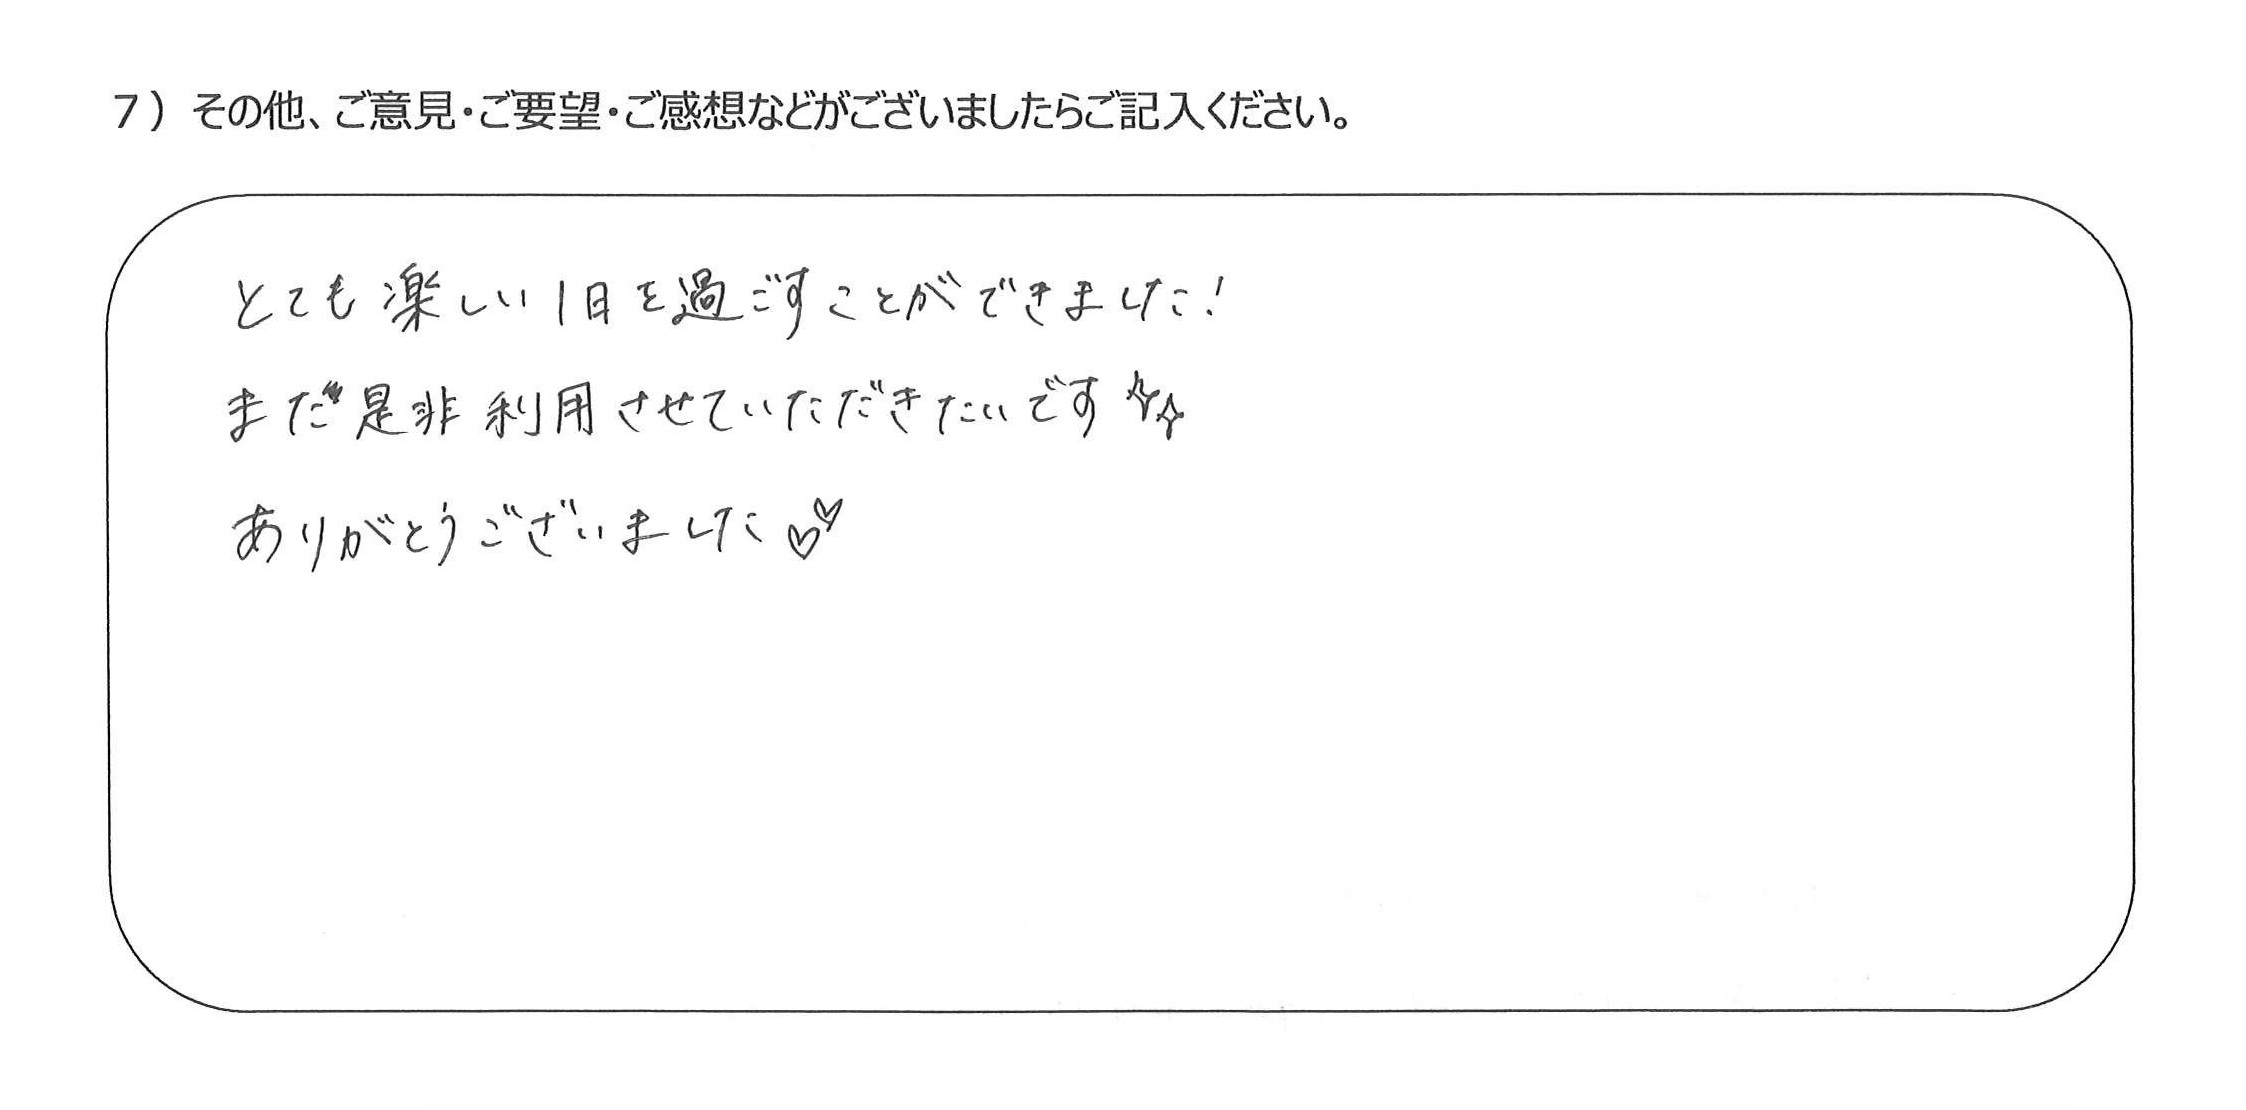 7）その他、ご意見・ご要望・ご感想などがございましたらご記入ください。
とても楽しい1日を過ごすことができました!
また是非利用させていただきたいです✨
ありがとうございました💕